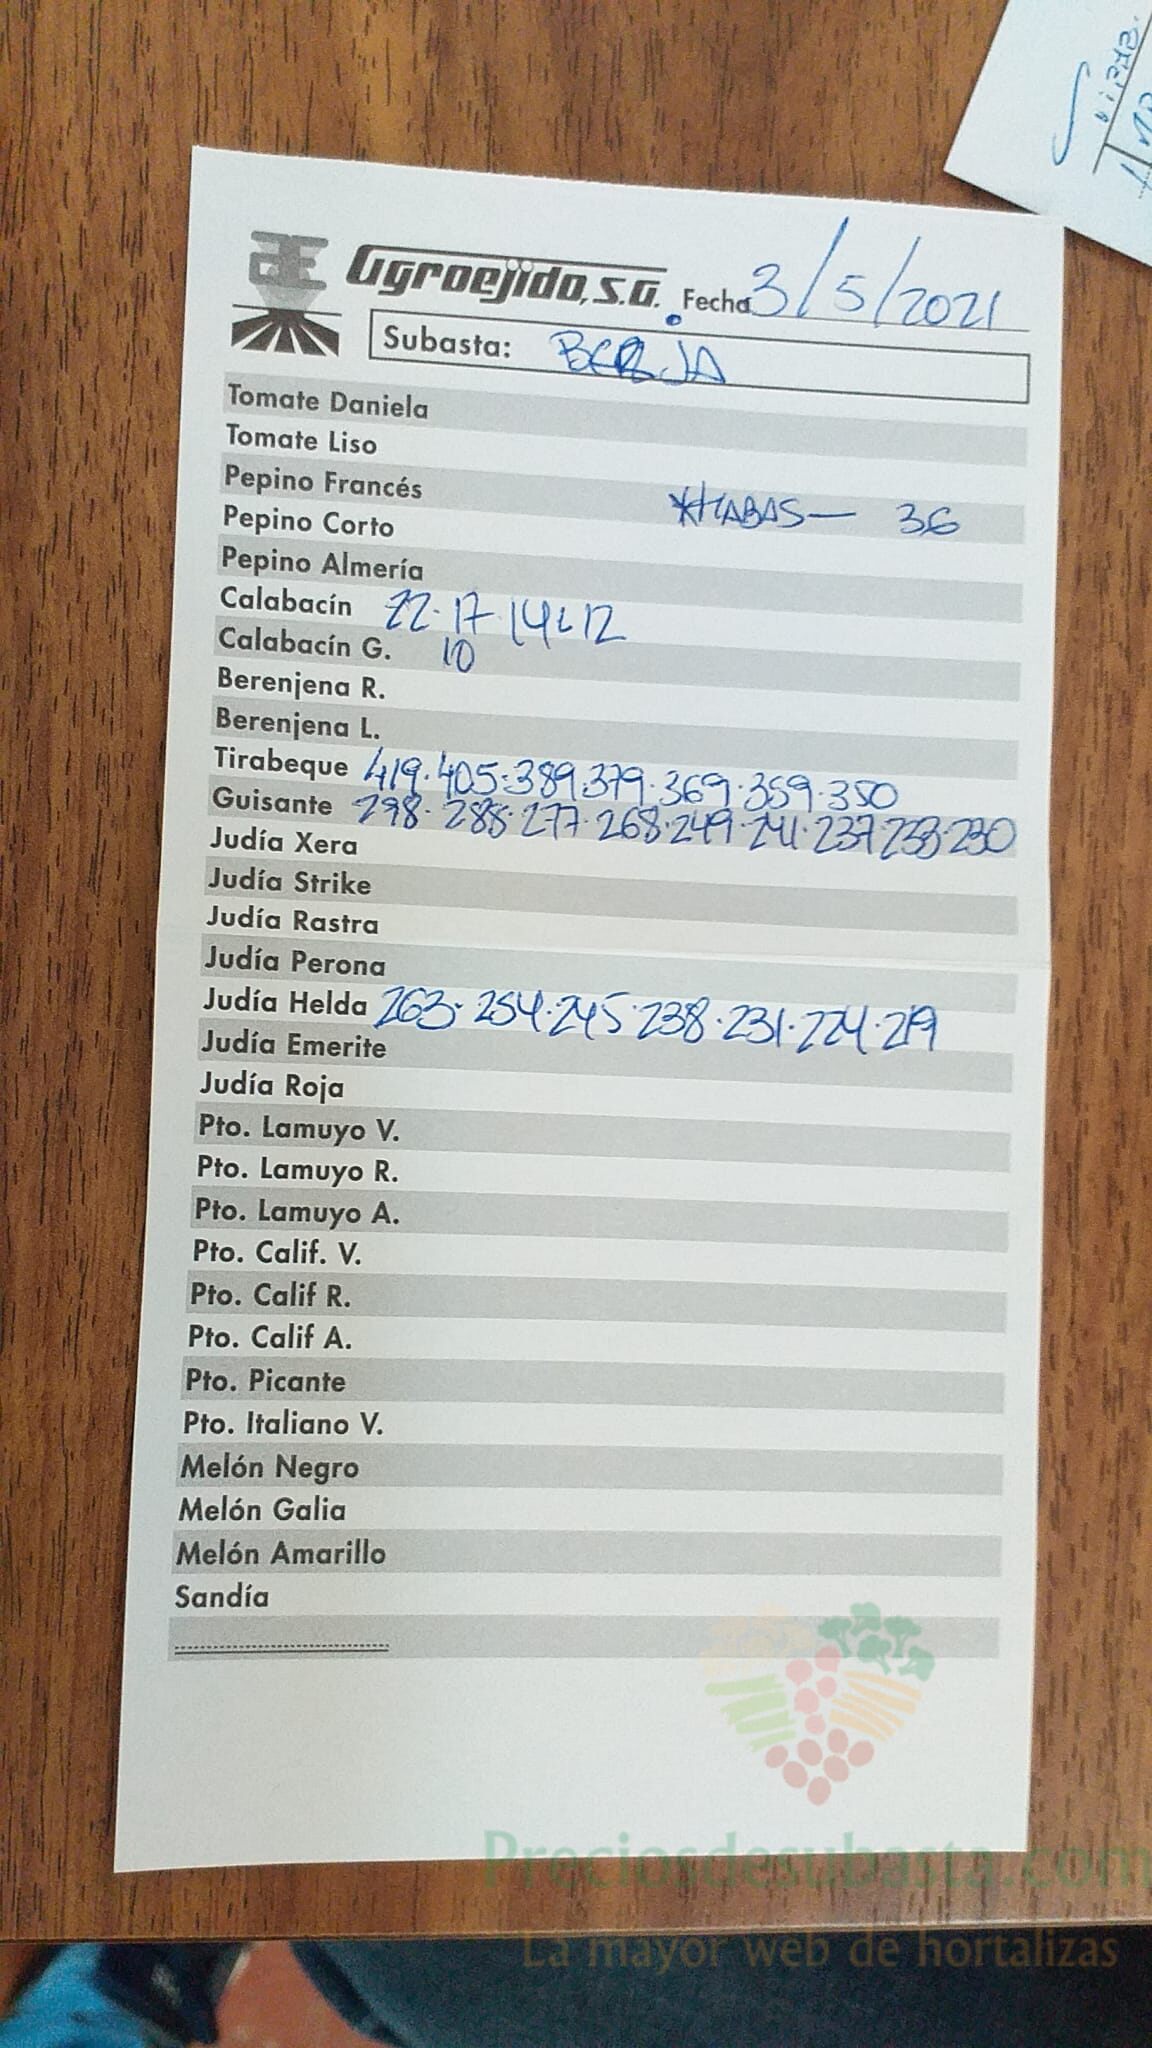 Agroejido, S.A. Fecha 3/5/2021
Subasta: BERJA
Tomate Daniela
Tomate Liso
Pepino Francés
*HABAS — 36
Pepino Corto
Pepino Almería
Calabacín 22·17·14·12
Calabacín G. 10
Berenjena R.
Berenjena L.
Tirabeque 419·405·389·379·369·359·350
Guisante 298·288·277·268·249·241·237·233·230
Judía Xera
Judía Strike
Judía Rastra
Judía Perona
Judía Helda 263·254·245·238·231·224·219
Judía Emerite
Judía Roja
Pto. Lamuyo V.
Pto. Lamuyo R.
Pto. Lamuyo A.
Pto. Calif. V.
Pto. Calif R.
Pto. Calif A.
Pto. Picante
Pto. Italiano V.
Melón Negro
Melón Galia
Melón Amarillo
Sandía
Preciosdesubasta.com
La mayor web de hortalizas